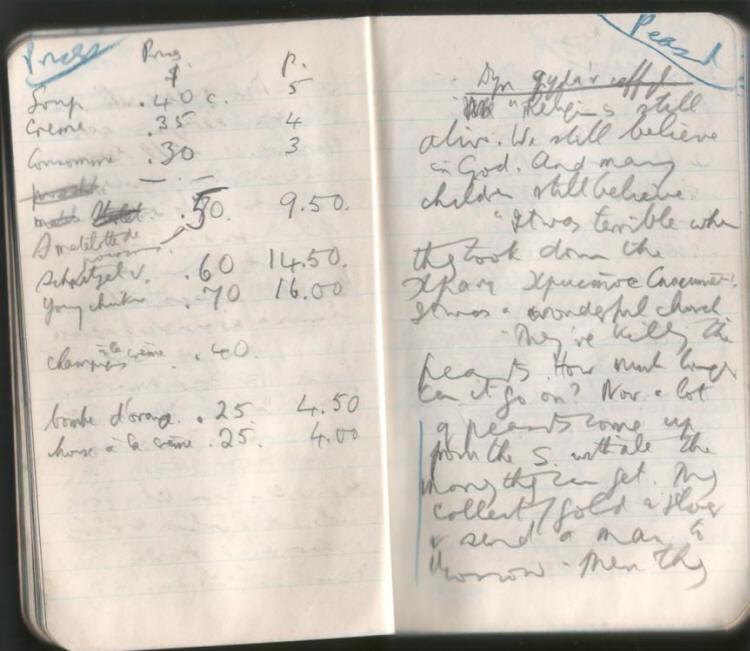 Prices
Prices
$ p.
Soup .40 c. 5
Creme .35 4
Consommé .30 3
— . —
.50. 9.50.
A matelotte de
poisson
Schnitzel v. .60 14.50.
Young chicken .70 16.00
champigns à la crème .40.
bombe d'orange. .25 4.50
choux à la crème .25. 4.00
Peasd
"Religion is still
alive. We still believe
in God. And many
children still believe.
"It was terrible when
they took down the
Храм Христос Спаситель.
It was a wonderful church.
"They're killing the
peasants. How much longer
can it go on? Now a lot
of peasants come up
from the S. with all the
money they can get. They
collect gold & silver
& send a man to
Then they